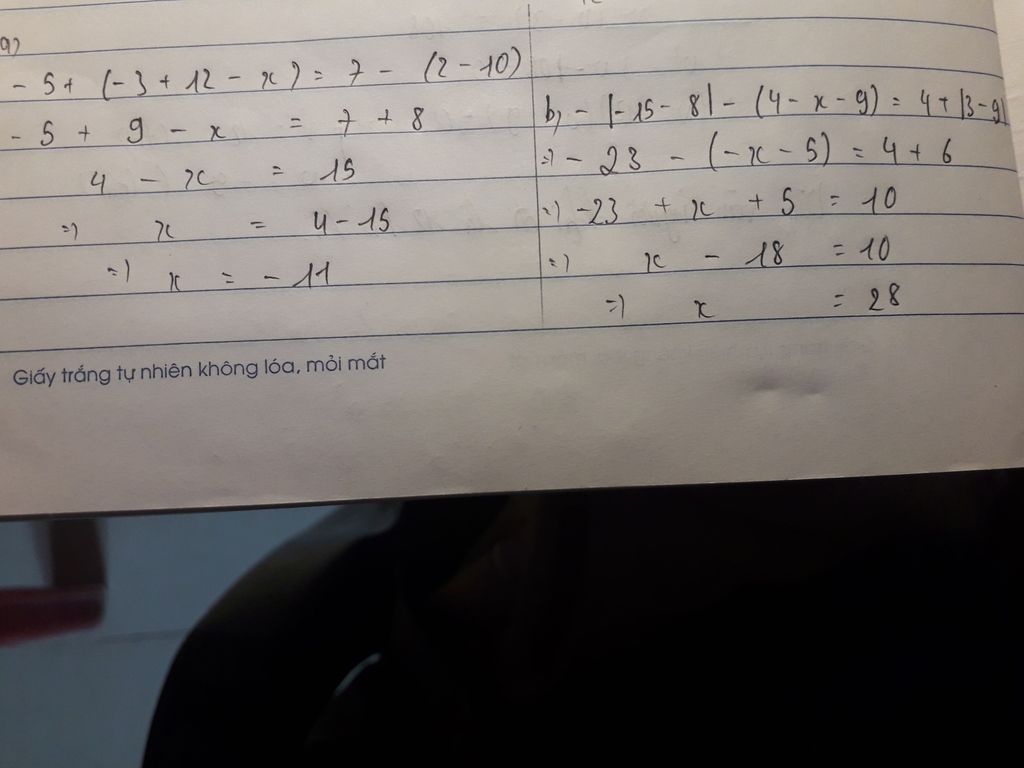 a)
- 5 + (-3 + 12 - x) = 7 - (2 - 10)
- 5 + 9 - x = 7 + 8
4 - x = 15
=) x = 4 - 15
=) x = - 11
b, - |-15 - 8| - (4 - x - 9) = 4 + |3 - 9|
=) - 23 - (-x - 5) = 4 + 6
=) -23 + x + 5 = 10
=) x - 18 = 10
=) x = 28
Giấy trắng tự nhiên không lóa, mỏi mắt